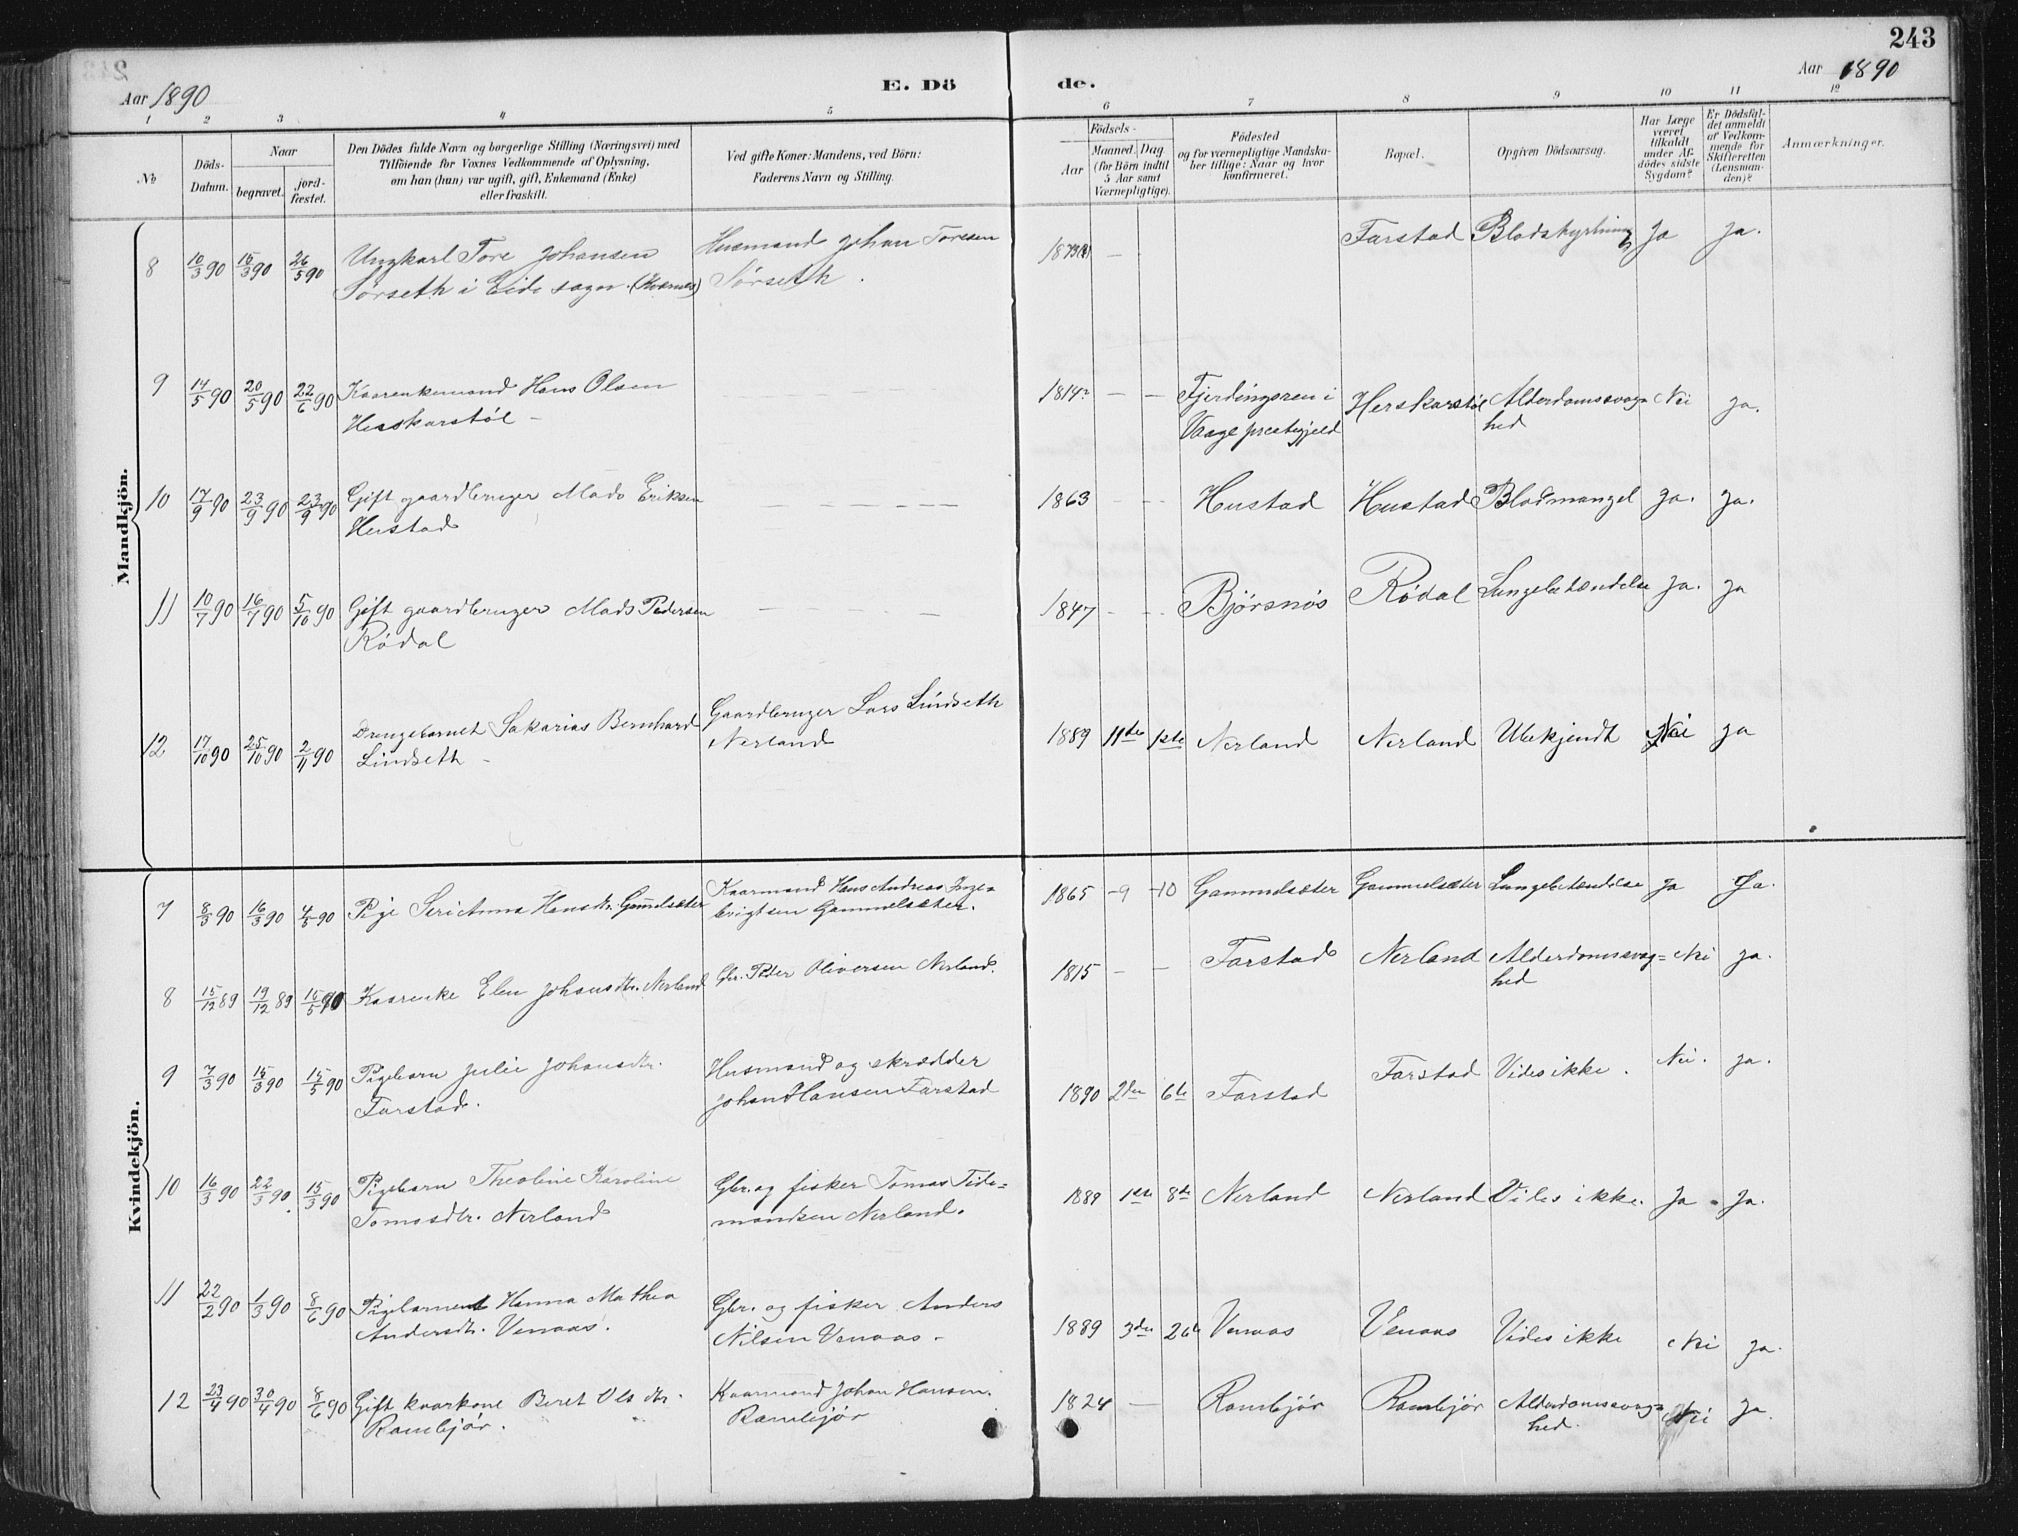 243
Aar 1890
E. Dö
de.
Aar 1890
1 2 3 4 5 6 7 8 9 10 11 12
№
Döds-
Datum.
Naar
begravet.
jord-
fæstet.
Den Dödes fulde Navn og borgerlige Stilling (Næringsvei) med
Tilföiende for Voxnes Vedkommende af Oplysning,
om han (hun) var ugift, gift, Enkemand (Enke)
eller fraskilt.
Ved gifte Koner: Mandens, ved Börn:
Faderens Navn og Stilling.
Födsels-
Aar
Maaned. Dag
(for Börn indtil
5 Aar samt
Værnepligtige).
Födested
og for værnepligtige Mandska-
ber tillige: Naar og hvor
konfirmeret.
Bopæl.
Opgiven Dödsaarsag.
Har Læge
været
tilkaldt
under Af-
dödes sidste
Sygdom?
Er Dödsfal-
det anmeldt
af Vedkom-
mende for
Skifteretten
(Lensman-
den)?
Anmærkninger.
Mandkjön.
8 10/3 90 15/3 90 26/5 90 Ungkarl Tore Johansen Husmand Johan Toresen 1873 — Farstad Blodstyrtning Ja Ja.
Sørseth i Eide sogn. (Kvernes) Sørseth.
9 14/5 90 20/5 90 22/6 90 Kaarenkemand Hans Olsen — — 1814 — — Fjerdingsren i Herskarstøl Alderdomssvag= Nei Ja.
Herskarstøl — Vaage præstegjeld hed
10 17/9 90 23/9 90 23/9 90 Gift gaardbruger Mads Eriksen — — — — — — 1863 -- Hustad Hustad Blodmangel Ja. Ja.
Hustad
11 10/7 90 16/7 90 5/10 90 Gift gaardbruger Mads Pedersen — — — 1847 - -- Bjørsnøs Rødal Lungebetændelse Ja. Ja
Rødal
12 17/10 90 25/10 90 2/11 90 Drengebarnet Sakarias Bernhard Gaardbruger Lars Lindseth 1889 11te 1ste Nerland Nerland Ubekjendt Nei Ja
Lindseth — Nerland
Kvindekjön.
7 8/3 90 16/3 90 4/5 90 Pige Seri Anna Hansdtr. Gammelsæter Kaarmand Hans Andreas Inge= 1865 -9 -10 Gammelsæter Gammelsæter Lungebetændelse Ja Ja.
brigtsen Gammelsæter.
8 15/12 89 19/12 89 15/5 90 Kaarenke Elen Johansdtr. Nerland Gbr. Peder Oliversen Nerland. 1815 — — Farstad Nerland Alderdomssvag= Nei Ja.
hed
9 7/3 90 15/3 90 15/5 90 Pigebarn Julie Johansdtr. Husmand og skrædder 1890 2den 6te Farstad Farstad Vides ikke. Nei. Ja.
Farstad. Johan Hansen Farstad
10 16/3 90 22/3 90. 15/3 90 Pigebarn Theoline Karoline Gbr. og fisker Tomas Tide= 1889 1ste 8de Nerland Nerland Vides ikke. Ja. Ja.
Tomasdtr. Nerland mandsen Nerland.
11 22/2 90 1/3 90 8/6 90 Pigebarnet Hanna Mathea Gbr. og fisker Anders 1889 3die 26de Venaas Venaas Vides ikke Nei Ja.
Andersdtr. Venaas. Nilsen Venaas —
12 23/4 90 30/4 90 8/6 90 Gift kaarkone Beret Olsdtr. Kaarmand Johan Hansen. 1824 — Rambjør Rambjør Alderdomssvag= Nei Ja.
Rambjør. Rambjør hed.